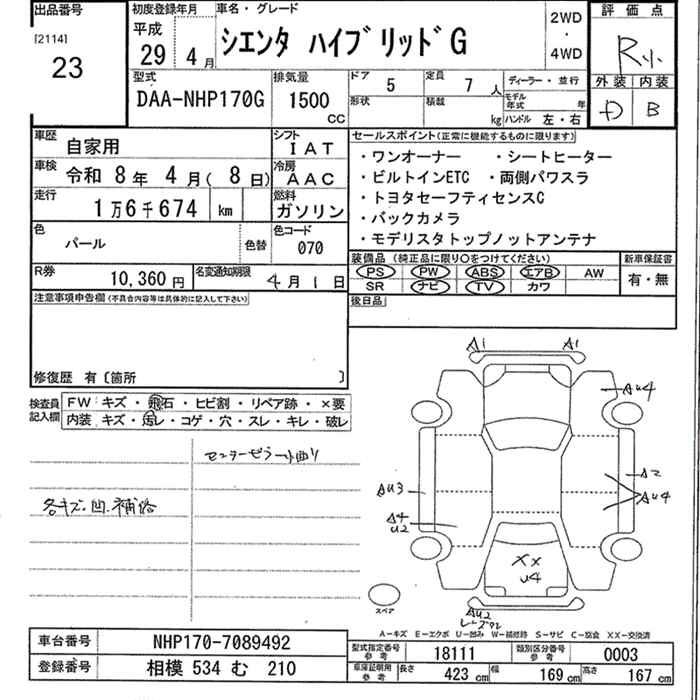 出品番号
[2114]
23
初度登録年月
平成
29 4月
車名・グレード
シエンタ ハイブリッドG
2WD
・
4WD
評価点
R小
外装 内装
D B
型式
DAA-NHP170G
排気量
1500
CC
ドア
5
定員
7 人
形状
積載
kg
ディーラー・並行
モデル年式 年
ハンドル 左・右
車歴 自家用
シフト
IAT
車検 令和 8年 4月( 8日)
冷房
AAC
走行 1万6千674 km
燃料
ガソリン
色
パール
色替
色コード
070
R券
10,360円
名変通知期限
4月1日
セールスポイント(正常に機能するものに限ります)
・ワンオーナー ・シートヒーター
・ビルトインETC ・両側パワスラ
・トヨタセーフティセンスC
・バックカメラ
・モデリスタトップノットアンテナ
装備品(純正品に限り○をつけてください)
PS PW ABS エアB AW
SR ナビ TV カワ
新車保証書
有・無
後日品
注意事項申告欄(不具合内容等は具体的に記入して下さい)
修復歴 有〔箇所 〕
検査員記入欄
FW キズ・飛石・ヒビ割・リペア跡・×要
内装 キズ・汚レ・コゲ・穴・スレ・キレ・破レ
センターピラー小曲り
各キズ.凹.補修
A1 A1
AU4
AU3
A2
AU4
A4
U2
XX
U4
AU2
スペア
A－キズ E－エクボ U－凹み W－補修跡 S－サビ C－腐食 XX－交換済
車台番号 NHP170-7089492
登録番号 相模 534 む 210
型式指定番号
参考
18111
類別区分番号
参考
0003
車庫証明用
参考
長さ 423 cm
幅 169 cm
高さ 167 cm